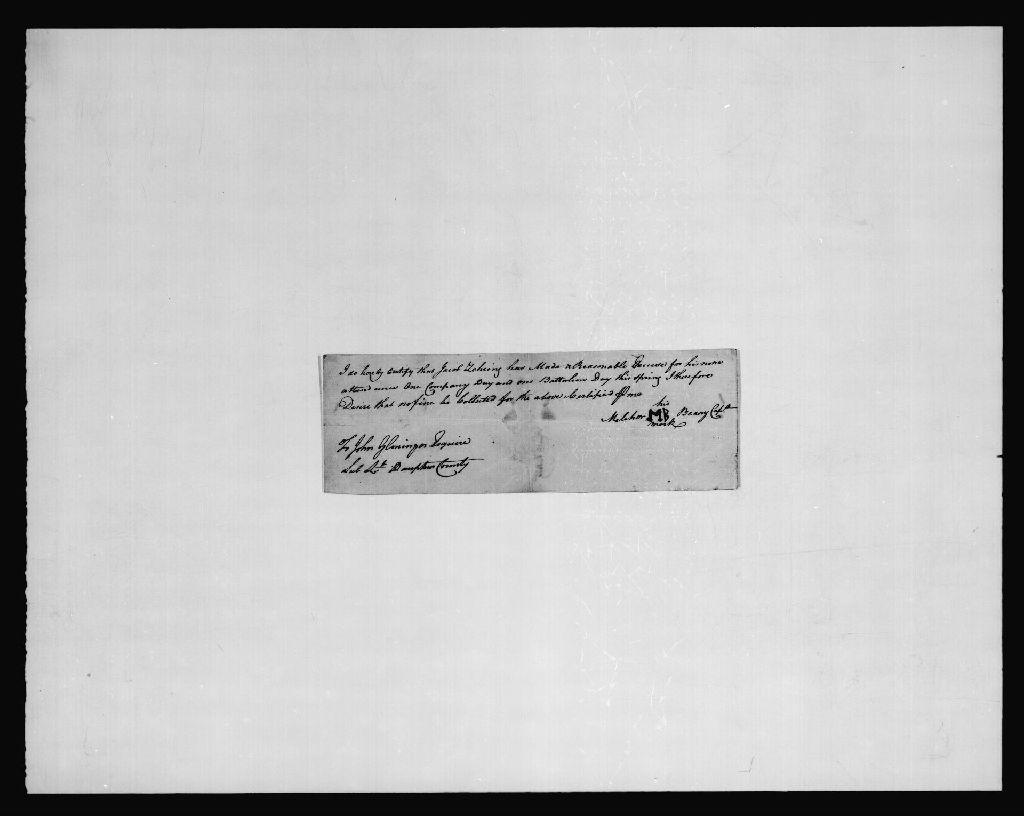 I do hereby Certify that Jacob Zehring has Made a Reasonable Excuse for his none
attend ance One Company Day and one Battalion Day this spring I therefore
Desire that no fine be Collected for the above Certified by me
Melchor his MB mark Beany Capt
To John Gloninger Esquire
Sub Lt Dauphin County